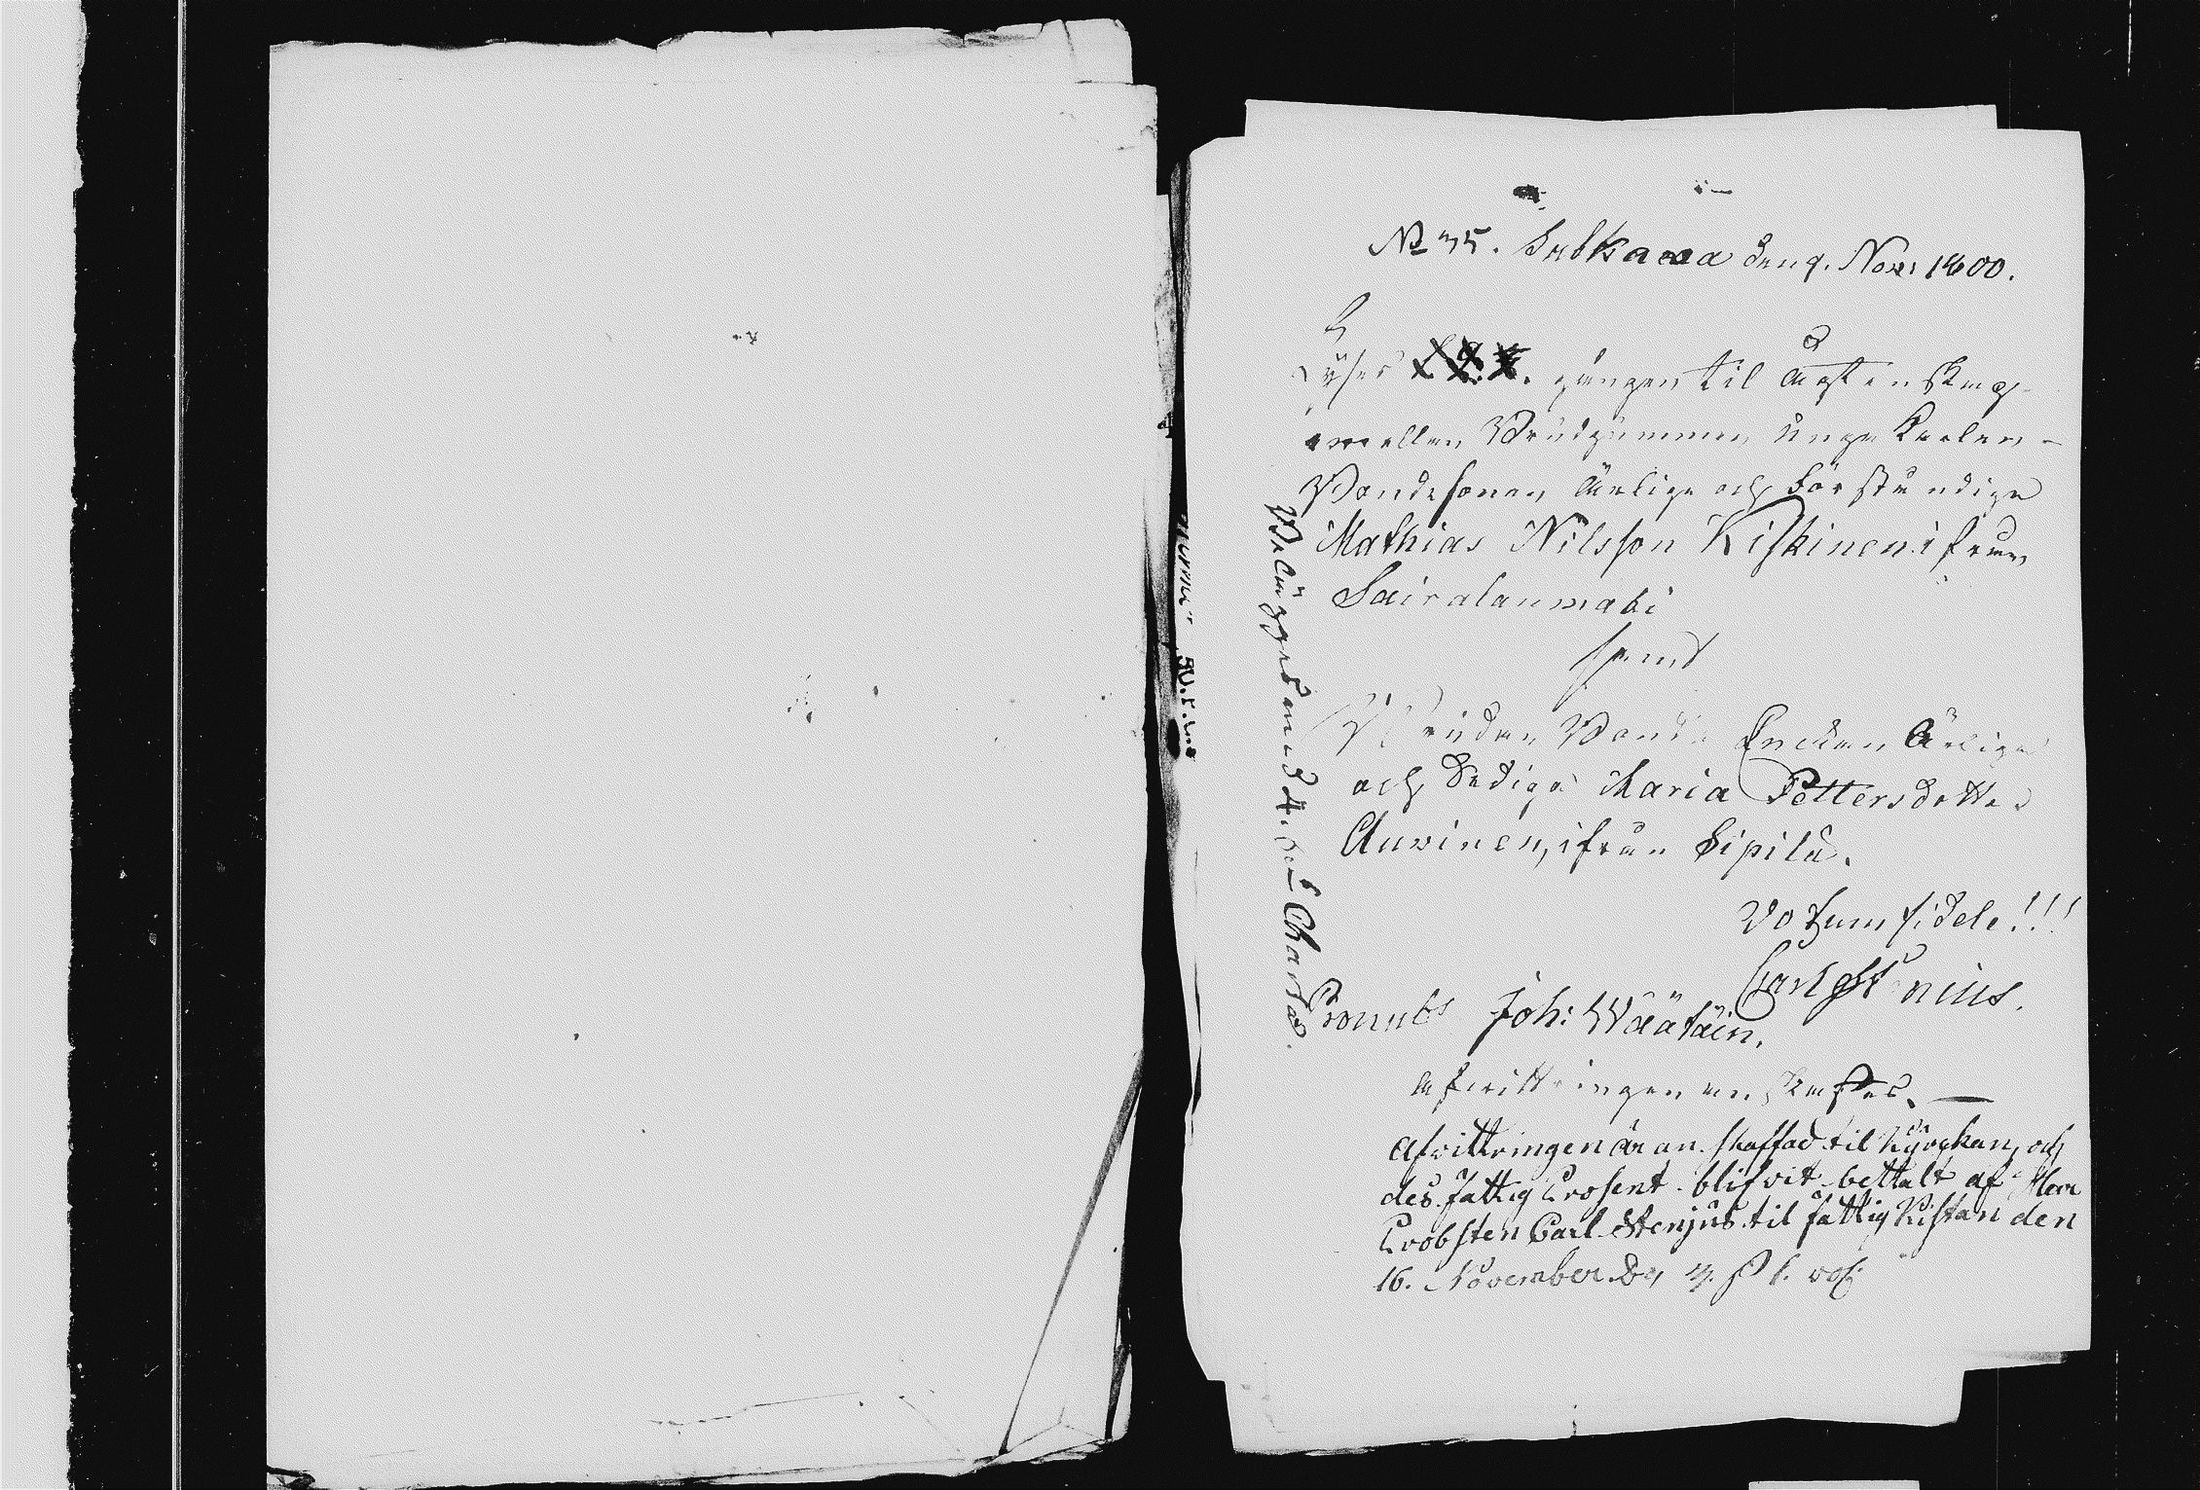 No 35. Sulkava den 9. Nov: 1800.
Lyses 1. 2. 3. gången til Ägtenskap
emellan Brudgummen Unge Karlen
Bondesonen Ärlige och Förståndige
Mathias Nilsson Kiskinen ifrån
Sairalanmäki
samt
Bruden Bonde Enckan Ärliga
och Dediga Maria Pettersdotter
Auvinen, ifrån Sipilä.
Votum fidele!!!
Carl Stenius.
Pronubs Joh: Wäätäin.
Afvittringen anskaffas. —
Afvittringen är an skaffad til Kyrckan, och
des fattig Prosent blifvit bettalt af Herr
Probsten Carl Stenjus til fattig Kistan den
16. November
Belägges med 4. Charta.